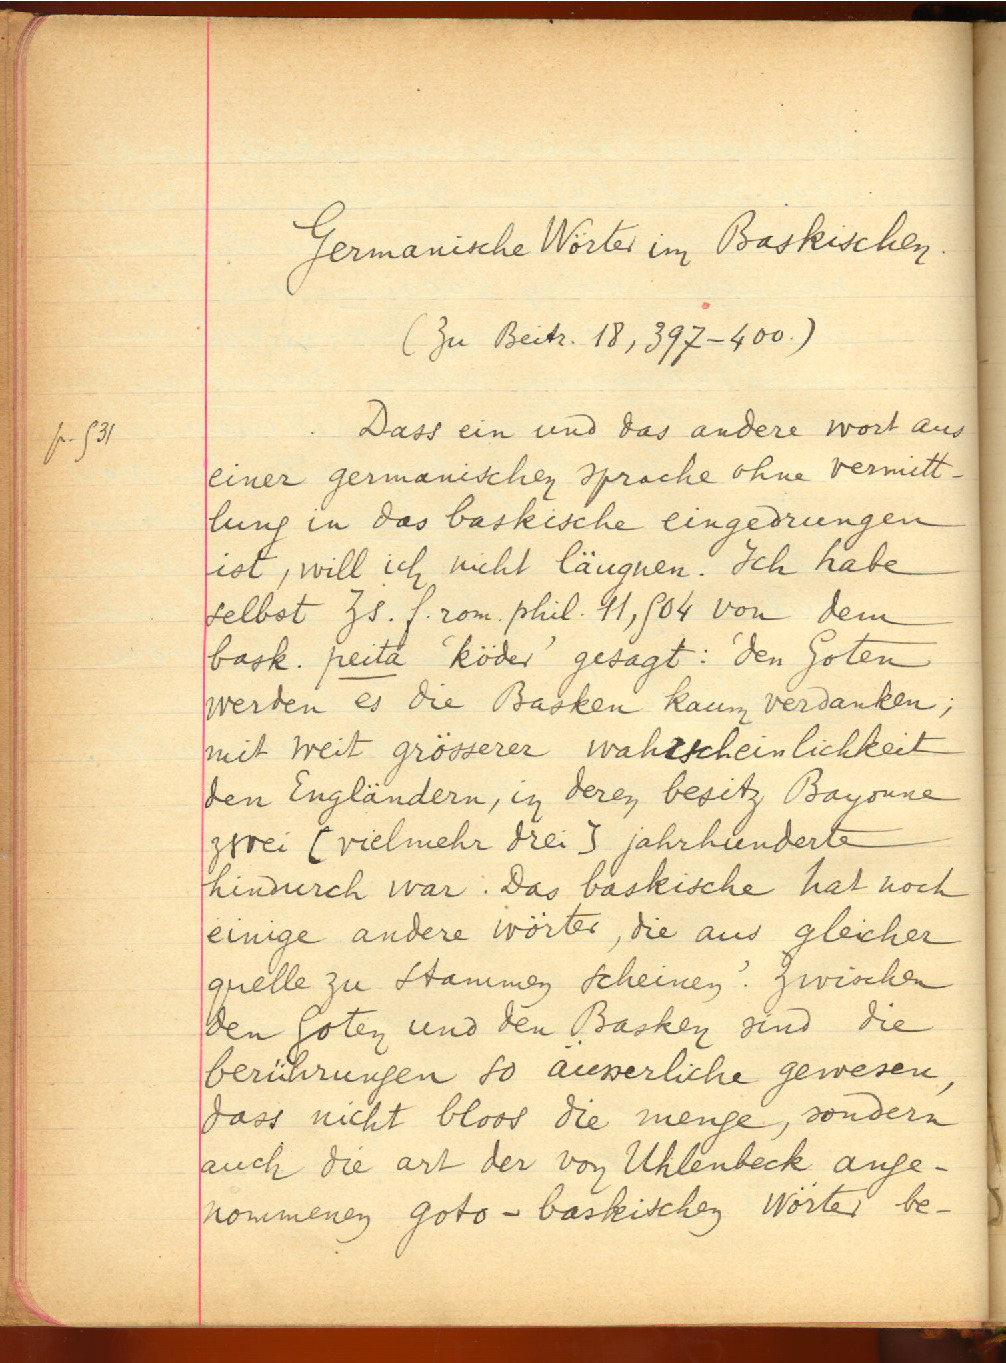 Germanische Wörter im Baskischen.
(Zu Beitr. 18, 397-400.)
p. 531
Dass ein und das andere wort aus
einer germanischen sprache ohne vermitt-
lung in das baskische eingedrungen
ist, will ich nicht läugnen. Ich habe
selbst Zs. f. rom. phil. 11, 504 von dem
bask. peita 'köder' gesagt: 'den Goten
werden es die Basken kaum verdanken;
mit weit grösserer wahrscheinlichkeit
den Engländern, in deren besitz Bayonne
zwei [vielmehr drei] jahrhunderte
hindurch war. Das baskische hat noch
einige andere wörter, die aus gleicher
quelle zu stammen scheinen'. Zwischen
den Goten und den Basken sind die
berührungen so äusserliche gewesen,
dass nicht bloss die menge, sondern
auch die art der von Uhlenbeck ange-
nommenen goto-baskischen Wörter be-